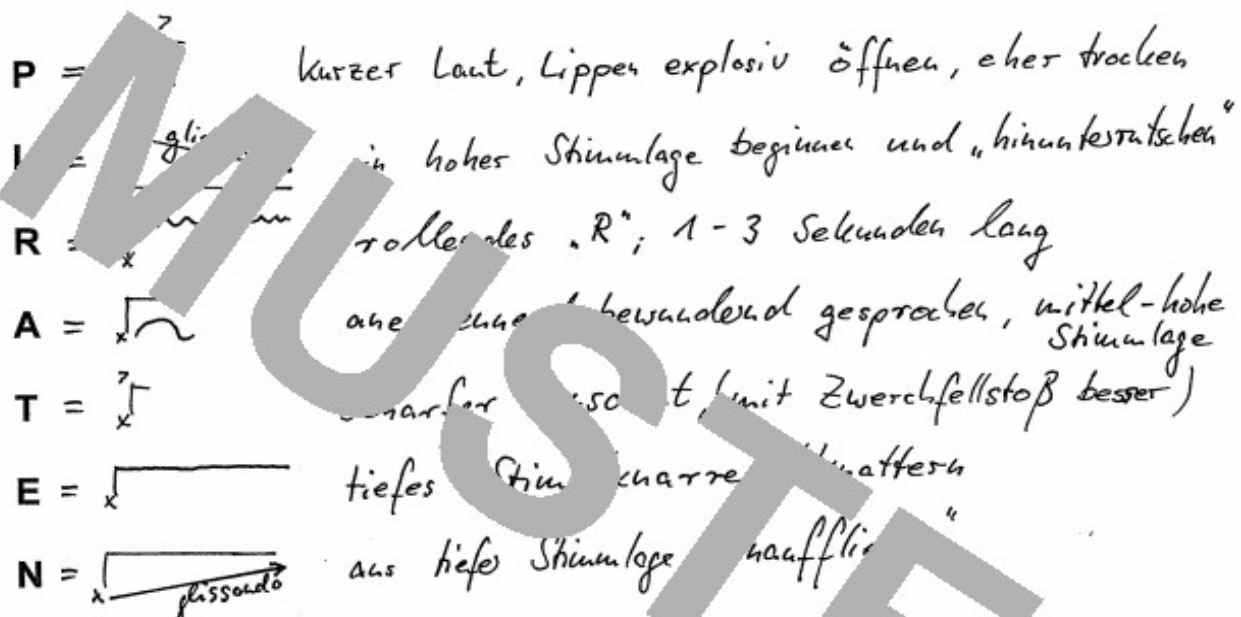 P = kurzer Laut, Lippen explosiv öffnen, eher trocken
= hoher Stimmlage beginnen und „hinunterrutschen“
R = rollendes „R“; 1 - 3 Sekunden lang
A = bewundernd gesprochen, mittel-hohe
Stimmlage
T = scharfer mit Zwerchfellstoß besser)
E = tiefes
N = glissando aus tiefer Stimmlage
MUSTE